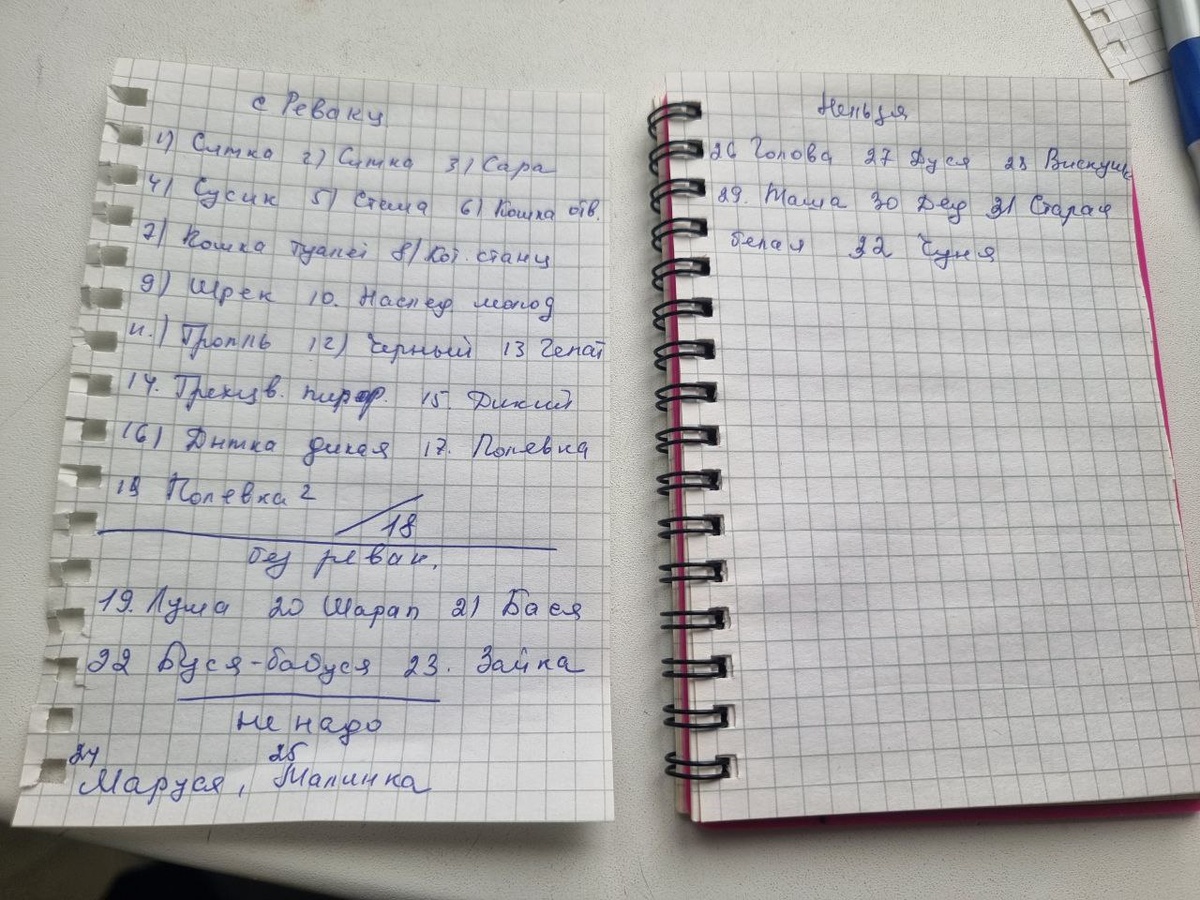 с Ревакц
1) Ситка 2) Ситка 3) Сара
4) Сусик 5) Стема 6) Кошка отв.
7) Кошка туалет 8) Кот. станц
9) Шрек 10. Наслед молод
11.) Тролль 12) Черный 13
14. Трехцв. 15. Дикий
16) дикая 17. Полевка
18 Полевка 2
18
без ревак.
19. Лума 20 Шарап 21 Бася
22 Буся-бабуся 23. Зайка
не надо
24 25
Маруся, Малинка
Нельзя
26 Голова 27 Дуся 28
29. Маша 30 Дед 31 Старая
белая 32 Чуня